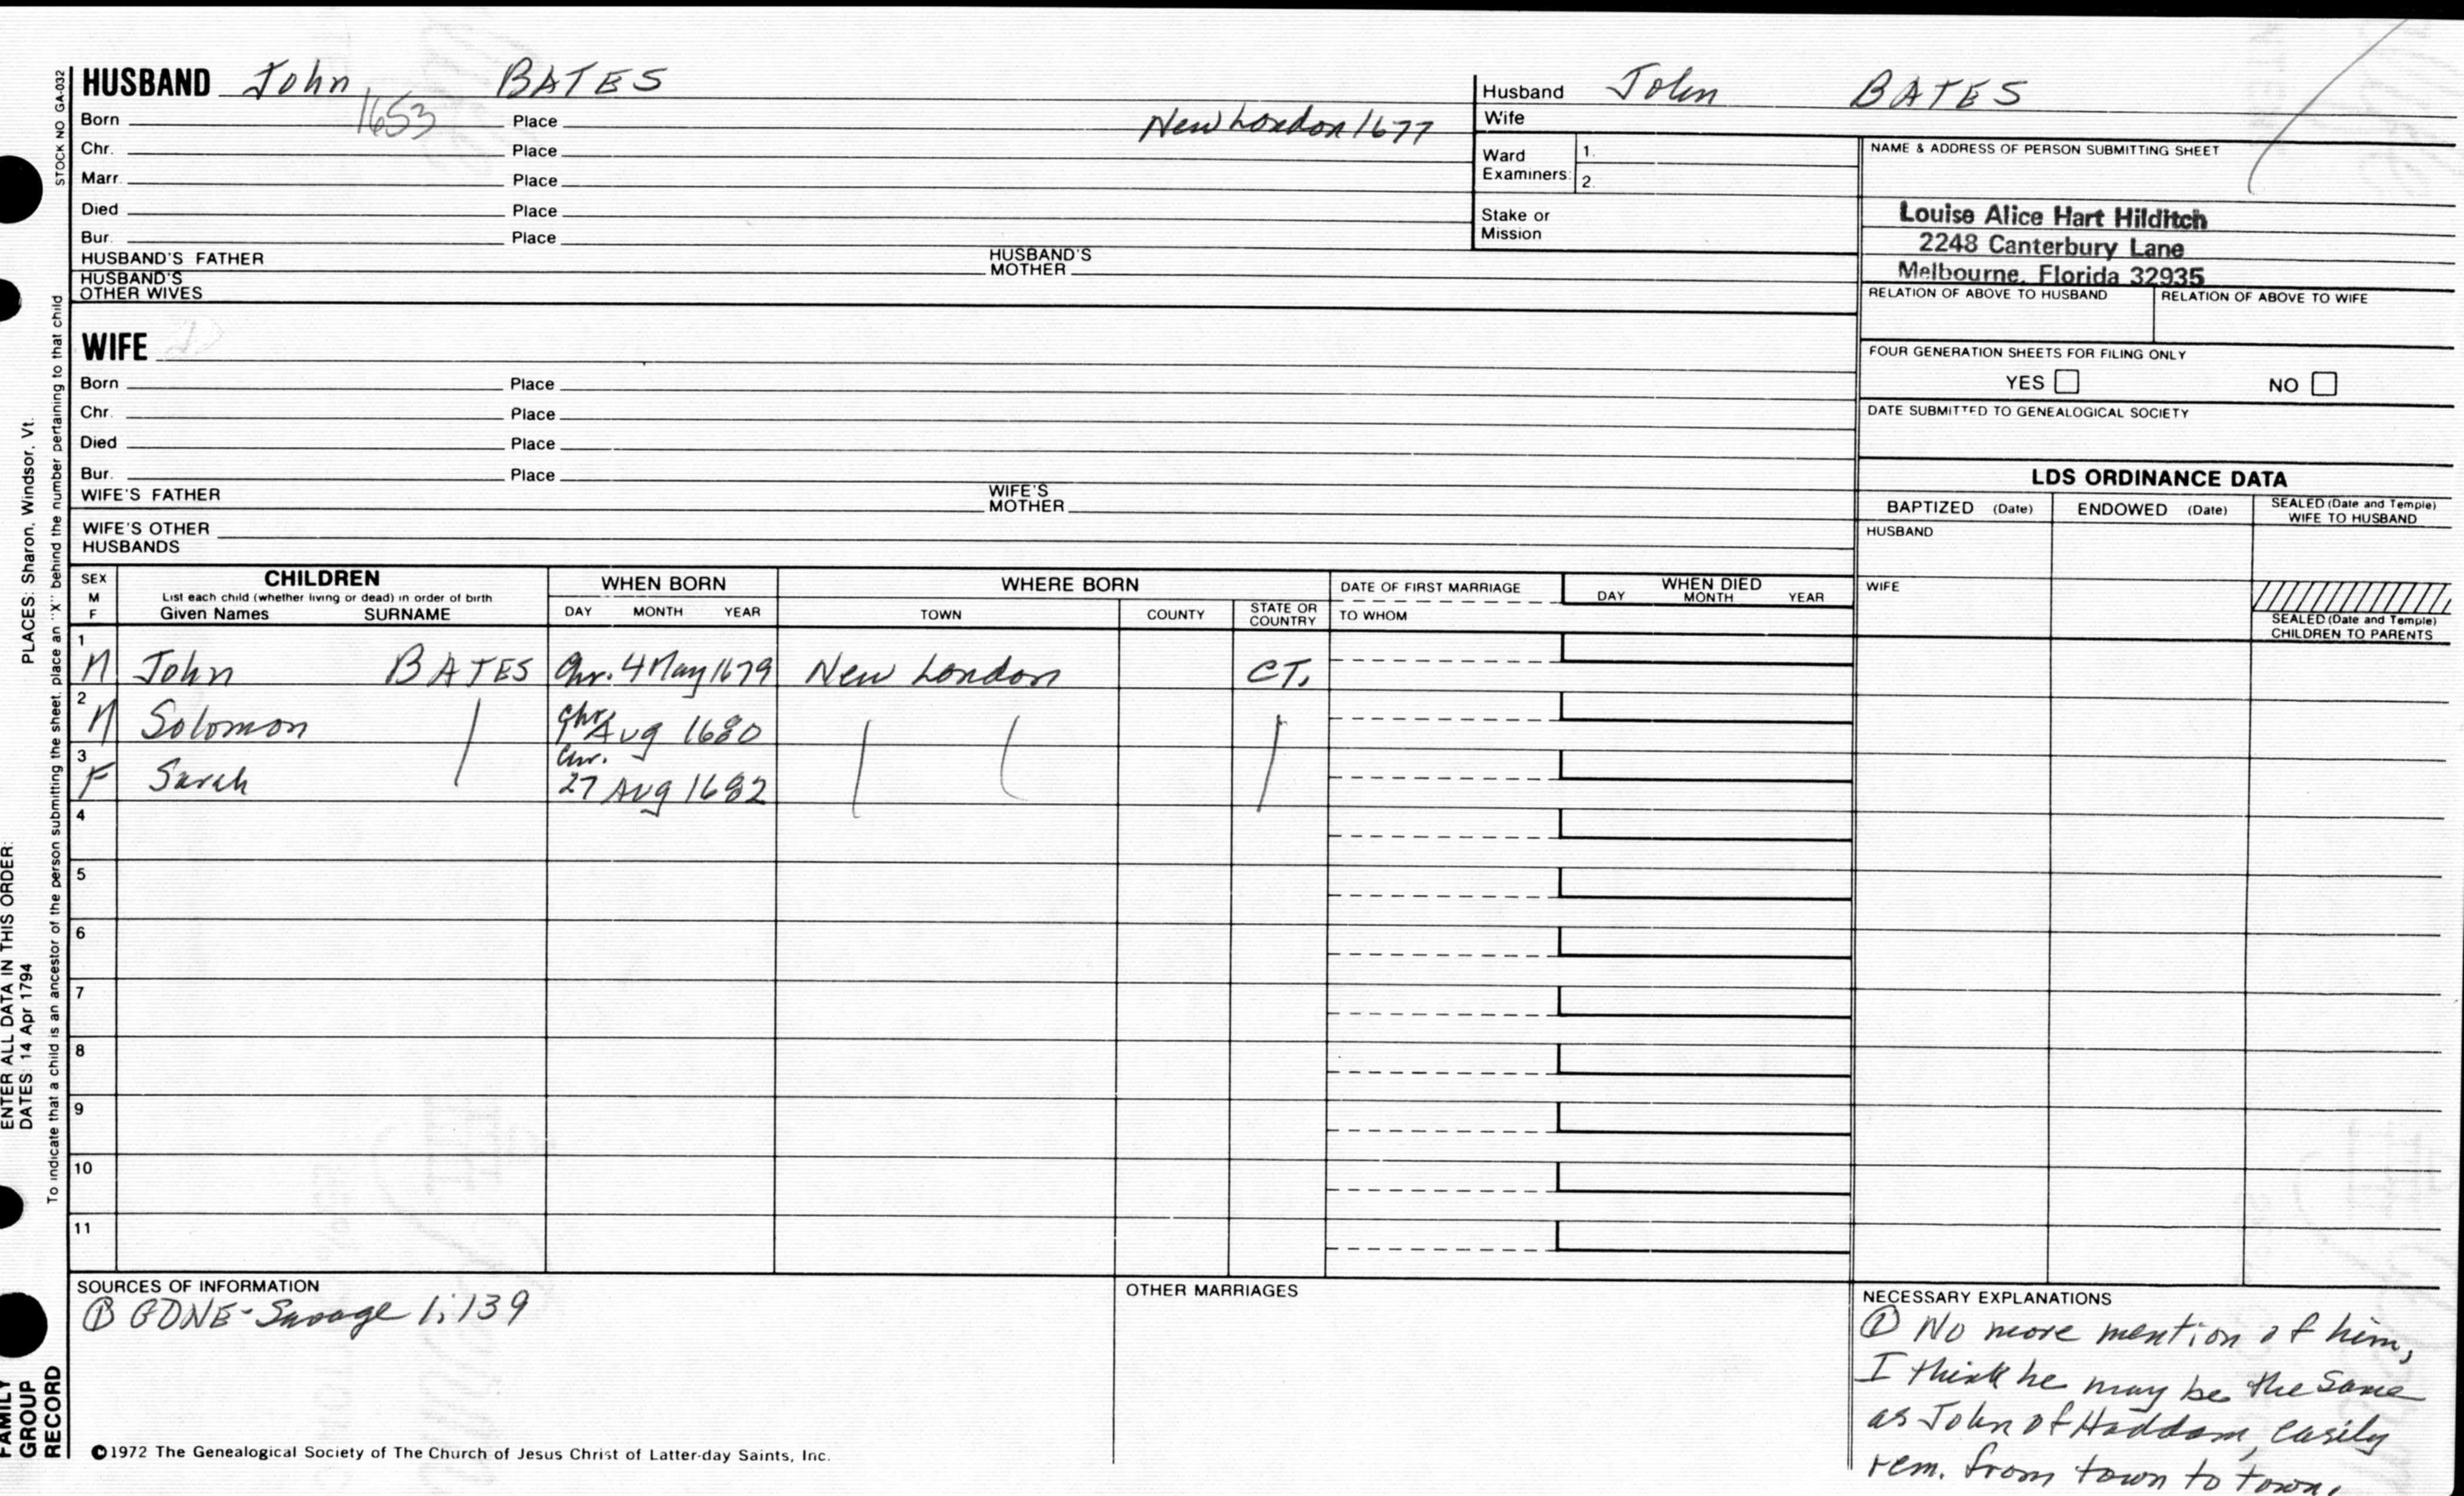 STOCK NO GA-032
HUSBAND John BATES
Born 1653 Place New London 1677
Chr. Place
Marr. Place
Died Place
Bur. Place
HUSBAND'S FATHER HUSBAND'S MOTHER
HUSBAND'S OTHER WIVES
Husband John BATES
Wife
Ward Examiners: 1.
2.
Stake or Mission
NAME & ADDRESS OF PERSON SUBMITTING SHEET
Louise Alice Hart Hilditch
2248 Canterbury Lane
Melbourne, Florida 32935
RELATION OF ABOVE TO HUSBAND RELATION OF ABOVE TO WIFE
FOUR GENERATION SHEETS FOR FILING ONLY
YES NO
DATE SUBMITTED TO GENEALOGICAL SOCIETY
WIFE
Born Place
Chr. Place
Died Place
Bur. Place
WIFE'S FATHER WIFE'S MOTHER
WIFE'S OTHER HUSBANDS
LDS ORDINANCE DATA
BAPTIZED (Date) ENDOWED (Date) SEALED (Date and Temple) WIFE TO HUSBAND
HUSBAND
WIFE
SEALED (Date and Temple) CHILDREN TO PARENTS
SEX M F
CHILDREN
List each child (whether living or dead) in order of birth
Given Names SURNAME
WHEN BORN
DAY MONTH YEAR
WHERE BORN
TOWN COUNTY STATE OR COUNTRY
DATE OF FIRST MARRIAGE
TO WHOM
WHEN DIED
DAY MONTH YEAR
1 M John BATES Chr. 4 May 1679 New London CT.
2 M Solomon Chr. Aug 1680
3 F Sarah Chr. 27 Aug 1682
4
5
6
7
8
9
10
11
SOURCES OF INFORMATION
① GDNE-Savage 1:139
OTHER MARRIAGES
NECESSARY EXPLANATIONS
① No more mention of him,
I think he may be the same
as John of Haddam, easily
rem. from town to town.
©1972 The Genealogical Society of The Church of Jesus Christ of Latter-day Saints, Inc.
ENTER ALL DATA IN THIS ORDER:
DATES: 14 Apr 1794 PLACES: Sharon, Windsor, Vt.
To indicate that a child is an ancestor of the person submitting the sheet, place an "X" behind the number pertaining to that child
FAMILY
GROUP
RECORD